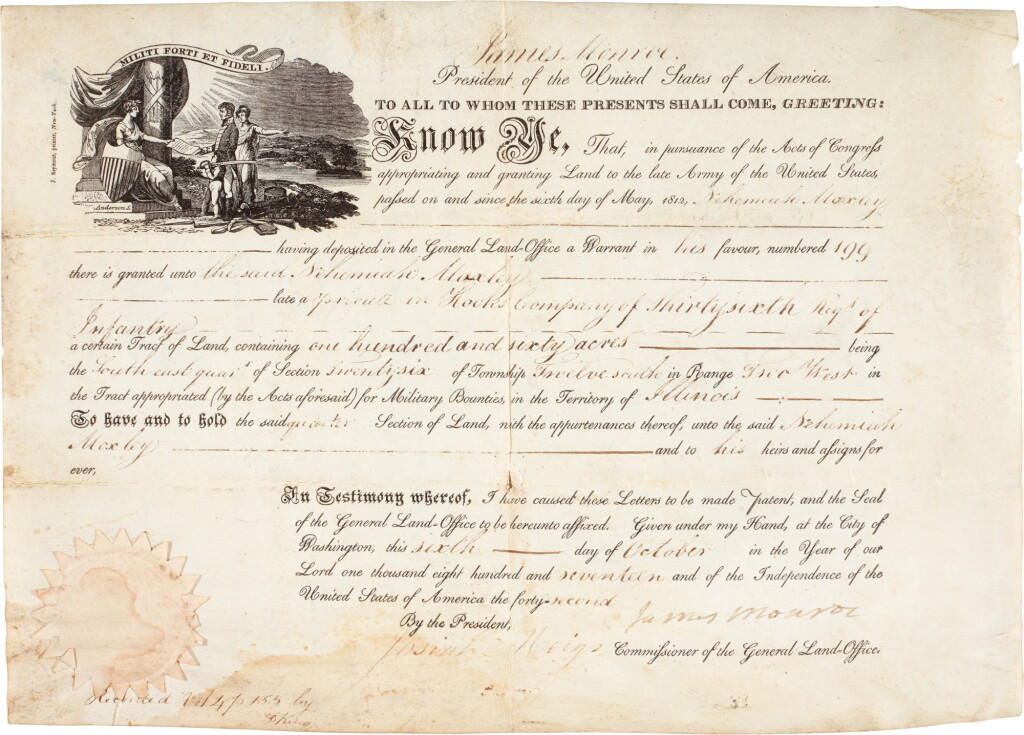 MILITI FORTI ET FIDELI.
J. Seymour, printer, New-York.
Anderson S.
James Monroe.
President of the United States of America.
TO ALL TO WHOM THESE PRESENTS SHALL COME, GREETING:
Know Ye, That, in pursuance of the Acts of Congress
appropriating and granting Land to the late Army of the United States,
passed on and since the sixth day of May, 1812, Nehemiah Moxley
having deposited in the General Land-Office a Warrant in his favour, numbered 199
there is granted unto the said Nehemiah Moxley
late a private in Hook's Company of Thirtysixth Regt of
Infantry
a certain Tract of Land, containing one hundred and sixty acres being
the South east quar of Section twentysix of Township Twelve south in Range Two West in
the Tract appropriated (by the Acts aforesaid) for Military Bounties, in the Territory of Illinois
To have and to hold the said quarter Section of Land, with the appurtenances thereof, unto the said Nehemiah
Moxley and to his heirs and assigns for
ever,
In Testimony whereof, I have caused these Letters to be made Patent, and the Seal
of the General Land-Office to be hereunto affixed. Given under my Hand, at the City of
Washington, this sixth day of October in the Year of our
Lord one thousand eight hundred and seventeen and of the Independence of the
United States of America the forty-second
James Monroe
By the President,
Josiah Meigs Commissioner of the General Land-Office.
Recorded Vol 47 p 155 by